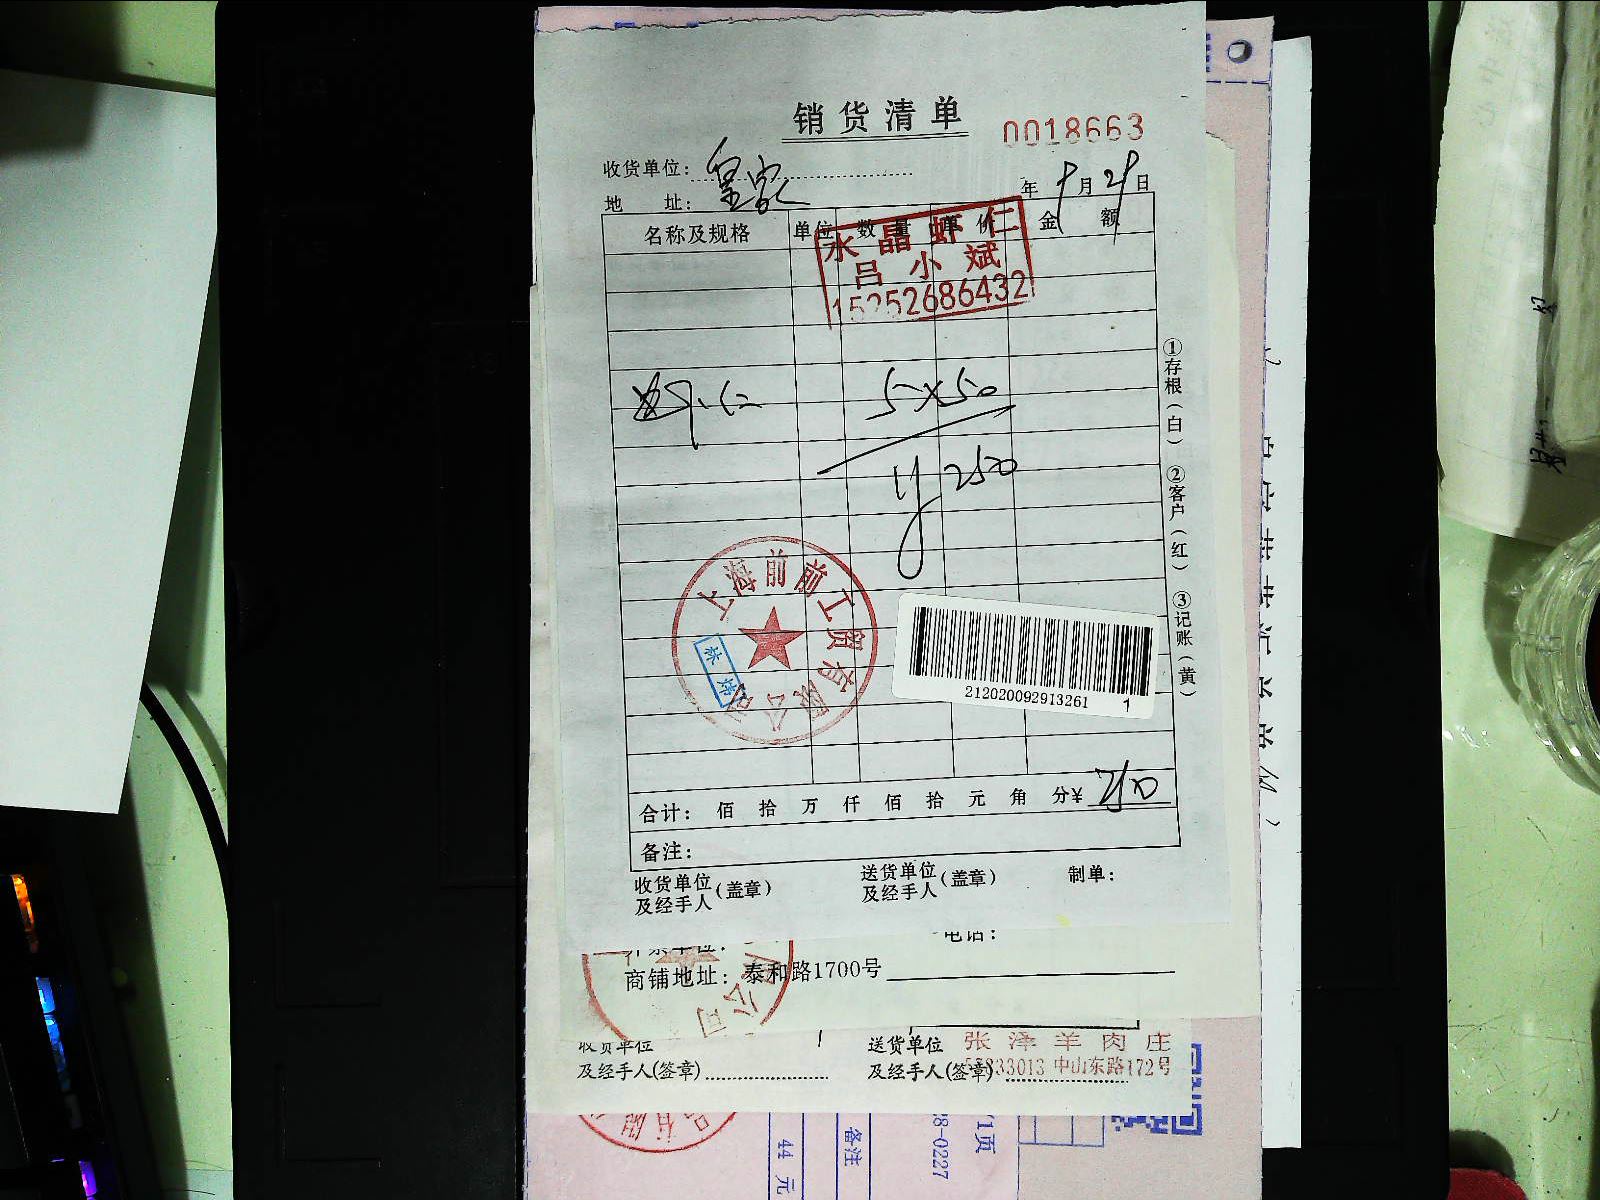 销货清单
0018663
收货单位: 皇家
地 址:
年 9 月 21 日
名称及规格 单位 数量 单价 金额
水晶虾仁
吕小斌
15252686432
虾仁 5×50
¥250
①存根(白) ②客户(红) ③记账(黄)
上海前前工贸有限公司
林炜
212020092913261 1
合计: 佰 拾 万 仟 佰 拾 元 角 分¥ 250
备注:
收货单位
及经手人(盖章)
送货单位
及经手人(盖章)
制单:
电话:
商铺地址: 泰和路1700号
公司
收货单位
及经手人(签章)
送货单位
及经手人(签章)
张泽羊肉庄
中山东路172号
44 元
备注
8-0227